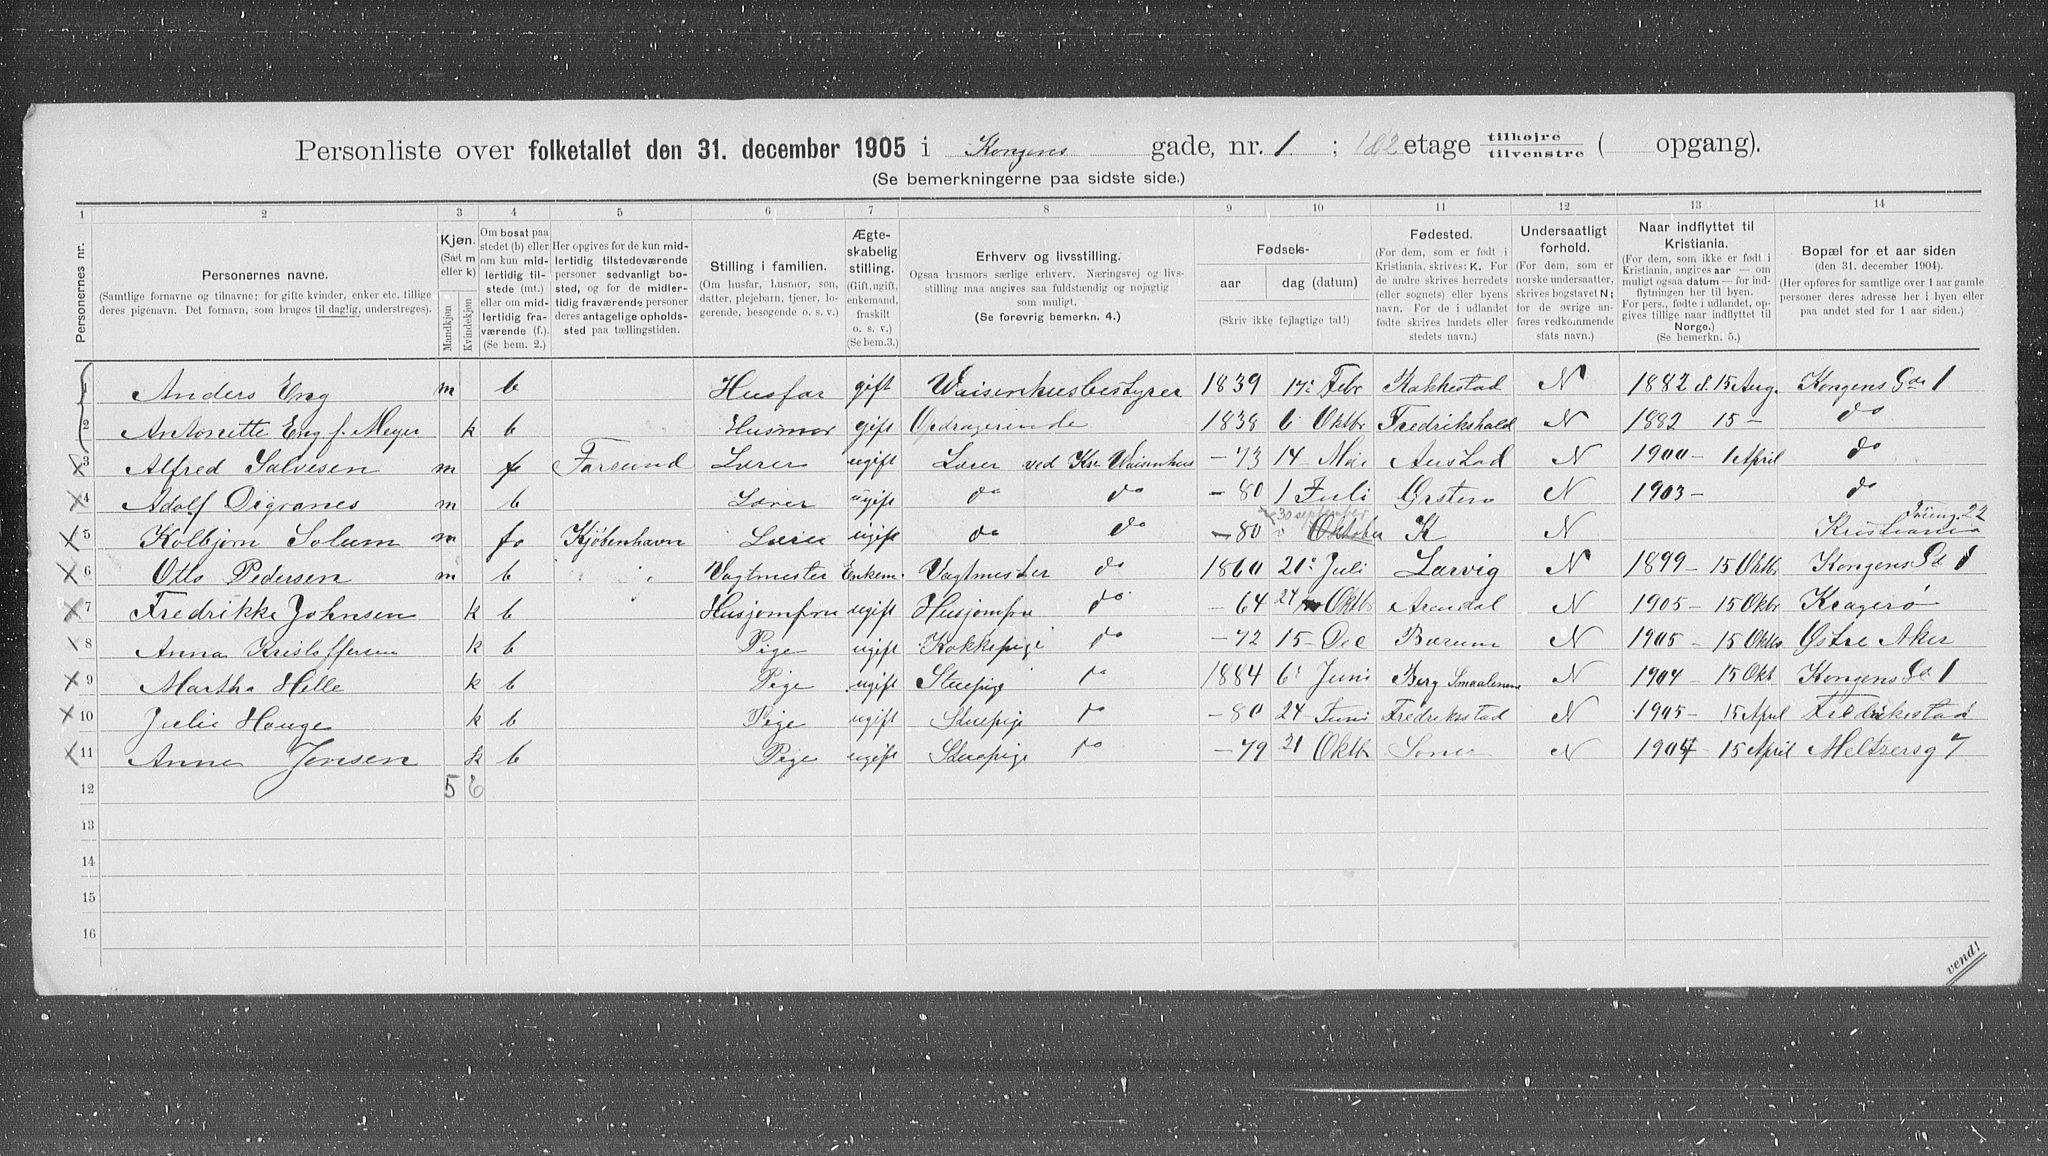 Personliste over folketallet den 31. december 1905 i Kongens gade, nr. 1. ; 1&2 etage tilhøjre tilvenstre ( opgang).
(Se bemerkningerne paa sidste side.)
1 2 3 4 5 6 7 8 9 10 11 12 13 14
Personernes nr.
Personernes navne.
(Samtlige fornavne og tilnavne; for gifte kvinder, enker etc. tillige deres pigenavn. Det fornavn, som bruges til daglig, understreges).
Kjøn. (Sæt m eller k.)
Mandkjøn
Kvindekjøn
Om bosat paa stedet (b) eller om kun midlertidig tilstede (mt.) eller om midlertidig fraværende (f.). (Se bem. 2.)
Her opgives for de kun midlertidig tilstedeværende personer sedvanligt bosted, og for de midlertidig fraværende personer deres antagelige opholdssted paa tællingstiden.
Stilling i familien.
(Om husfar, husmor, søn, datter, plejebarn, tjener, logerende, besøgende o. s. v.)
Ægteskabelig stilling. (Gift, ugift, enkemand, fraskilt o. s. v.) (Se bem.3.)
Erhverv og livsstilling.
Ogsaa husmors særlige erhverv. Næringsvej og livsstilling maa angives saa fuldstændig og nøjagtig som muligt.
(Se forøvrig bemerkn. 4.)
Fødsels-
aar dag (datum)
(Skriv ikke fejlagtige tal!)
Fødested.
(For dem, som er født i Kristiania, skrives: K. For de andre skrives herredets (eller sognets) eller byens navn. For de i udlandet fødte skrives landets eller stedets navn.)
Undersaatligt forhold.
(For dem, som er norske undersaatter, skrives bogstavet N; for de øvrige anføres vedkommende stats navn.)
Naar indflyttet til Kristiania.
(For dem, som ikke er født i Kristiania, angives aar — og om muligt ogsaa datum — for indflytningen her til byen. For pers., fødte i udlandet, opgives tillige naar indflyttet til Norge.) (Se bemerkn. 5.)
Bopæl for et aar siden
(den 31. december 1904).
(Her opføres for samtlige over 1 aar gamle personer deres adresse her i byen eller paa andet sted for 1 aar siden.)
1 Anders Eng m b Husfar gift Waisenhusbestyrer 1839 17 Febr Rakkestad N 1882 d. 15 Aug. Kongens Gde 1
2 Antonette Eng f. Meyer k b Husmor gift Opdragerinde 1838 6 Oktbr Fredrikshald N 1882 15 — do
3 Alfred Salvesen m f Farsund Lærer ugift Lærer ved Kr. Waisenhus — 73 14 Mai Austad N 1900 — 1 April do
4 Adolf Digranes m b Lærer ugift do do — 80 1 Juli Ørsten N 1903 — do
30 september Tøieng. 22
5 Kolbjørn Solum m fo Kjøbenhavn Lærer ugift do do — 80 Oktober K N Kristiania
6 Otto Pedersen m b Vagtmester Enkem. Vagtmester do 1860 21 Juli Larvig N 1899 — 15 Oktbr Kongens Gd 1
7 Fredrikke Johnsen k b Husjomfru ugift Husjomfru do — 64 24 Oktb Arendal N 1905 — 15 Okbr Kragerø
8 Anna Kristoffersen k b Pige ugift Kokkepige do — 72 15 Dec Bærum N 1905 — 15 Oktb Østre Aker
9 Martha Helle k b Pige ugift Stuepige do 1884 6 Juni Berg Smaalenene N 1904 — 15 Okt Kongens Gd 1
10 Julie Hauge k b Pige ugift Stuepige do — 80 24 Juni Fredriksstad N 1905 — 15 April Fredriksstad
11 Anna Jensen k b Pige ugift Stuepige do — 79 21 Oktb Soner N 1904 — 15 April Meltzersg 7
12 5 6
13
14
15
16
vend!